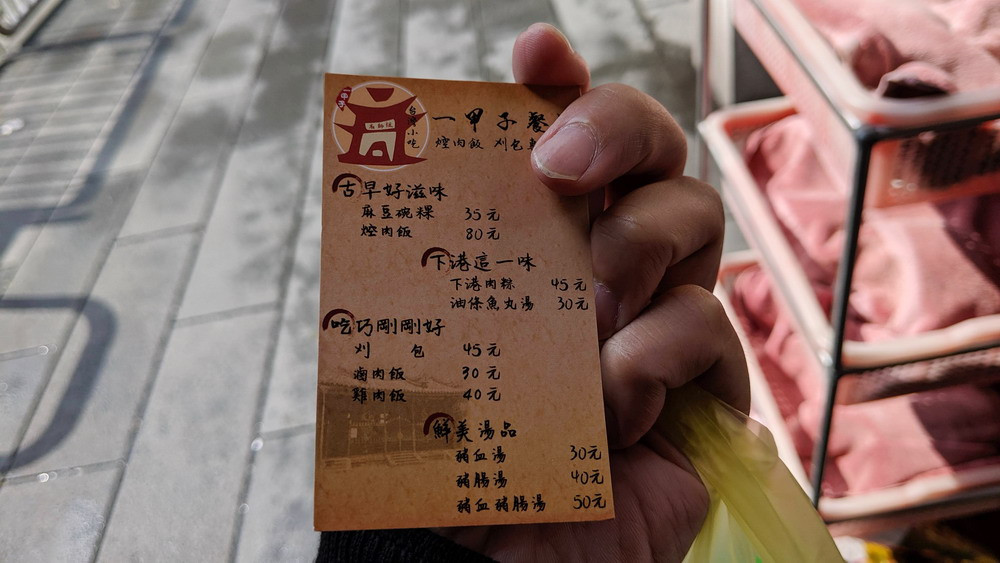 台灣小吃
一甲子餐
焢肉飯 刈包
古早好滋味
麻豆碗粿 35元
焢肉飯 80元
下港這一味
下港肉粽 45元
油條魚丸湯 30元
吃巧剛剛好
刈 包 45元
滷肉飯 30元
雞肉飯 40元
鮮美湯品
豬血湯 30元
豬腸湯 40元
豬血豬腸湯 50元